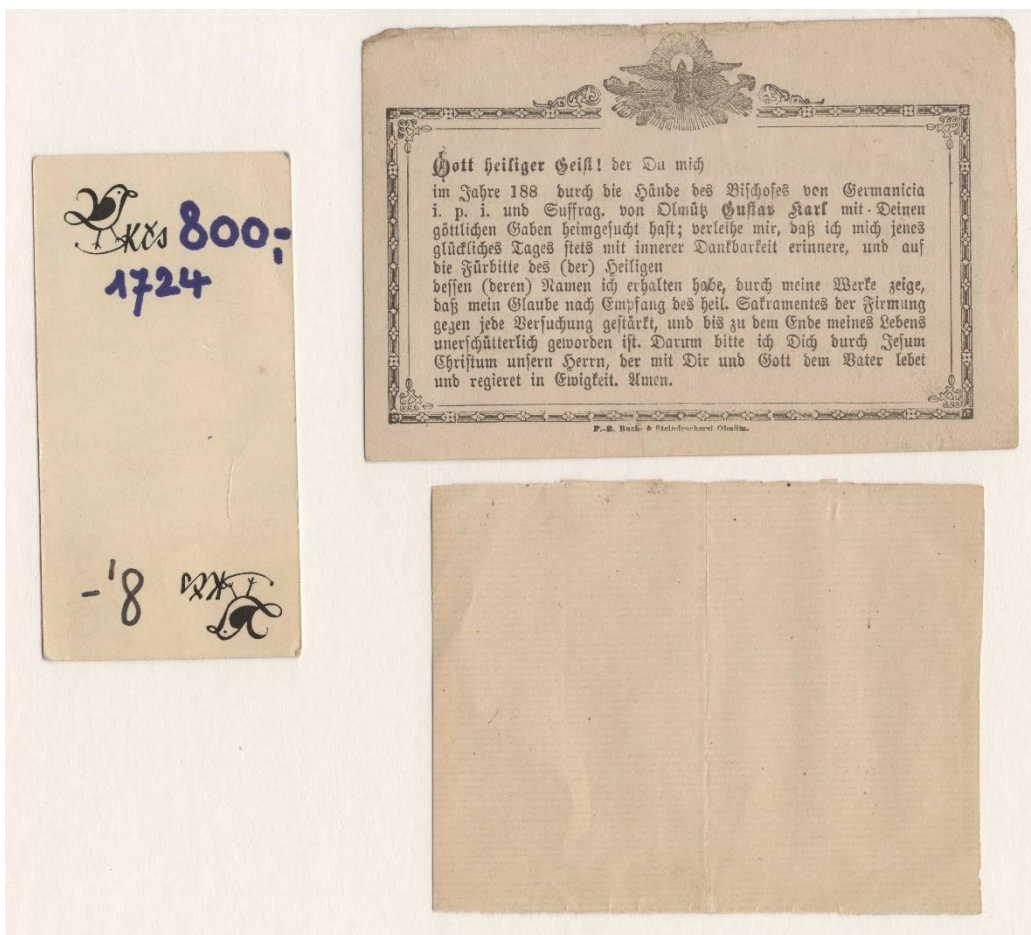 Kčs 800,-
1724
8,-
Kčs
Gott heiliger Geist! der Du mich
im Jahre 188 durch die Hände des Bischofes von Germanicia
i. p. i. und Suffrag. von Olmütz Gustav Karl mit Deinen
göttlichen Gaben heimgesucht hast; verleihe mir, daß ich mich jenes
glückliches Tages stets mit innerer Dankbarkeit erinnere, und auf
die Fürbitte des (der) Heiligen
dessen (deren) Namen ich erhalten habe, durch meine Werke zeige,
daß mein Glaube nach Empfang des heil. Sakramentes der Firmung
gegen jede Versuchung gestärkt, und bis zu dem Ende meines Lebens
unerschütterlich geworden ist. Darum bitte ich Dich durch Jesum
Christum unsern Herrn, der mit Dir und Gott dem Vater lebet
und regieret in Ewigkeit. Amen.
F.-E. Buch- & Steindruckerei Olmütz.